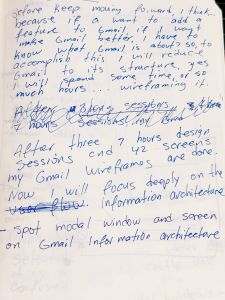 before keep moving forward, I think..
because if a want to add a
feature to Gmail, if I want
make Gmail better, I have to
know what Gmail is about? so, to
accomplish this I will reduce
Gmail to its structure, yes
I will spend some time, or so
much hours... wireframing it.
sessions
7 hours sessions
After three 7 hours design
sessions and 42 screens
my Gmail wireframes are done.
Now I will focus deeply on the
user flow. information architecture
- Spot modal window and screen
on Gmail Information architecture